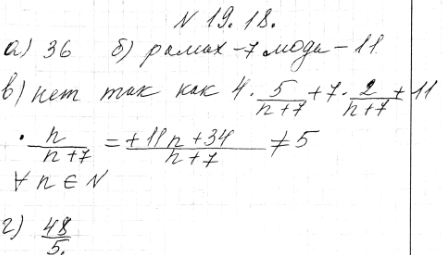 N 19.18.
а) 36 б) размах -7 мода - 11
в) нет так как 4 · 5/(n+7) + 7 · 2/(n+7) + 11
· n/(n+7) = (+11n+34)/(n+7) ≠ 5
∀ n ∈ N
г) 48/5.